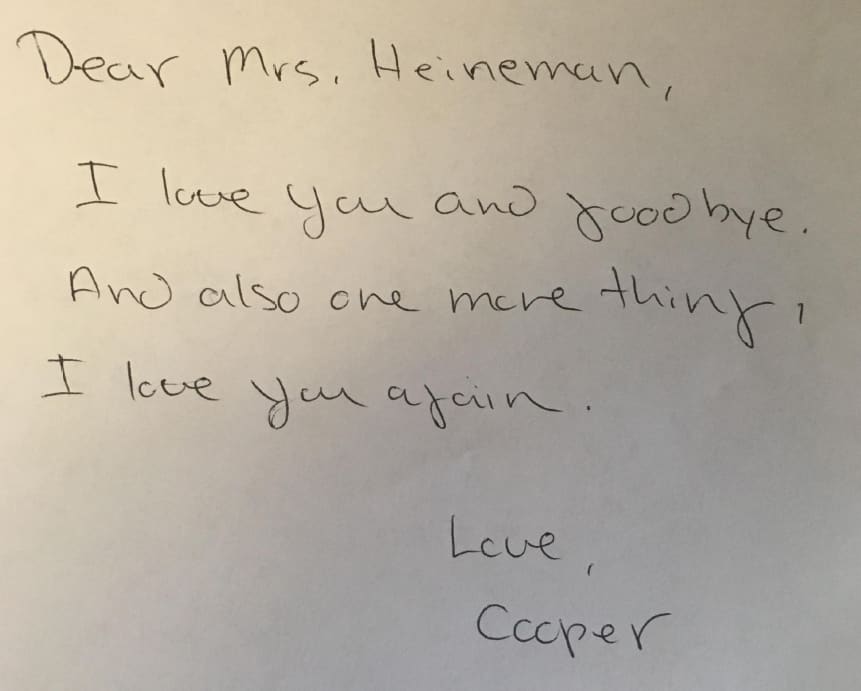 Dear Mrs. Heineman,
I love you and goodbye.
And also one more thing,
I love you again.
Love,
Cooper